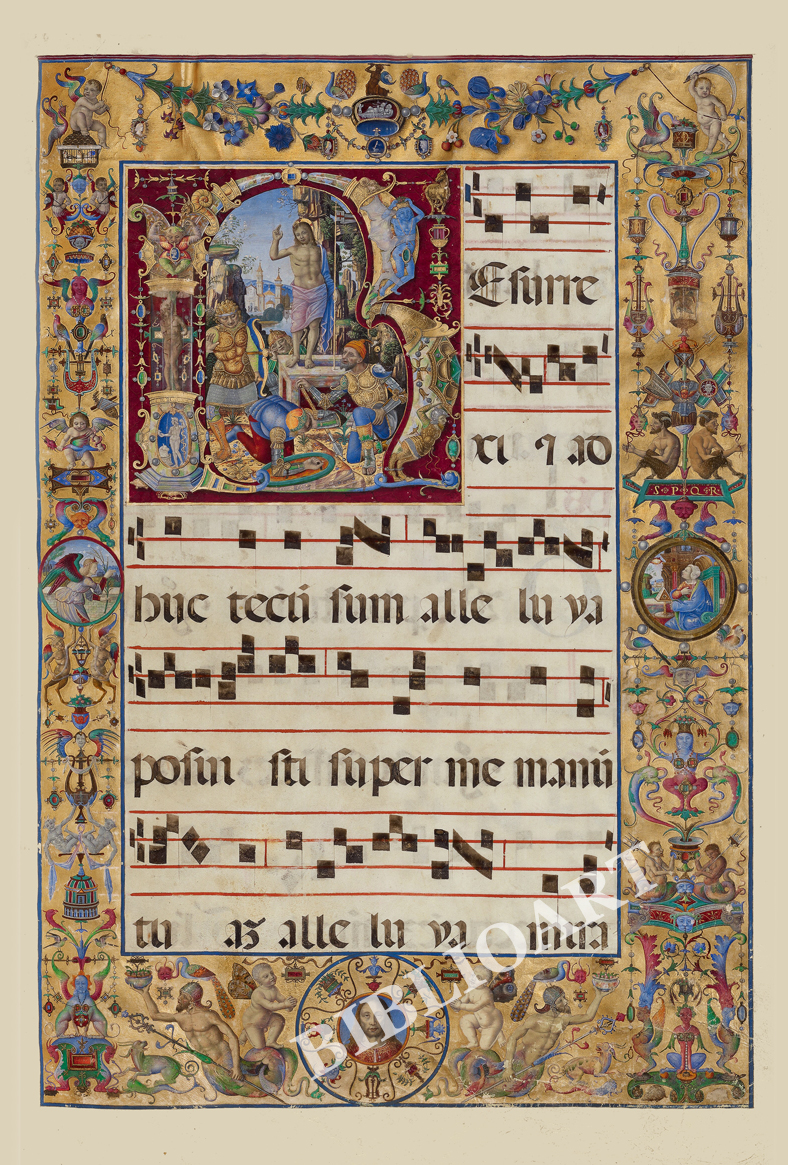 Esurre
xi ⁊ ad
huc tecũ sum alle lu ya
S·P·Q·R·
posui sti super me manũ
tu az alle lu ya mira
BIBLIOART